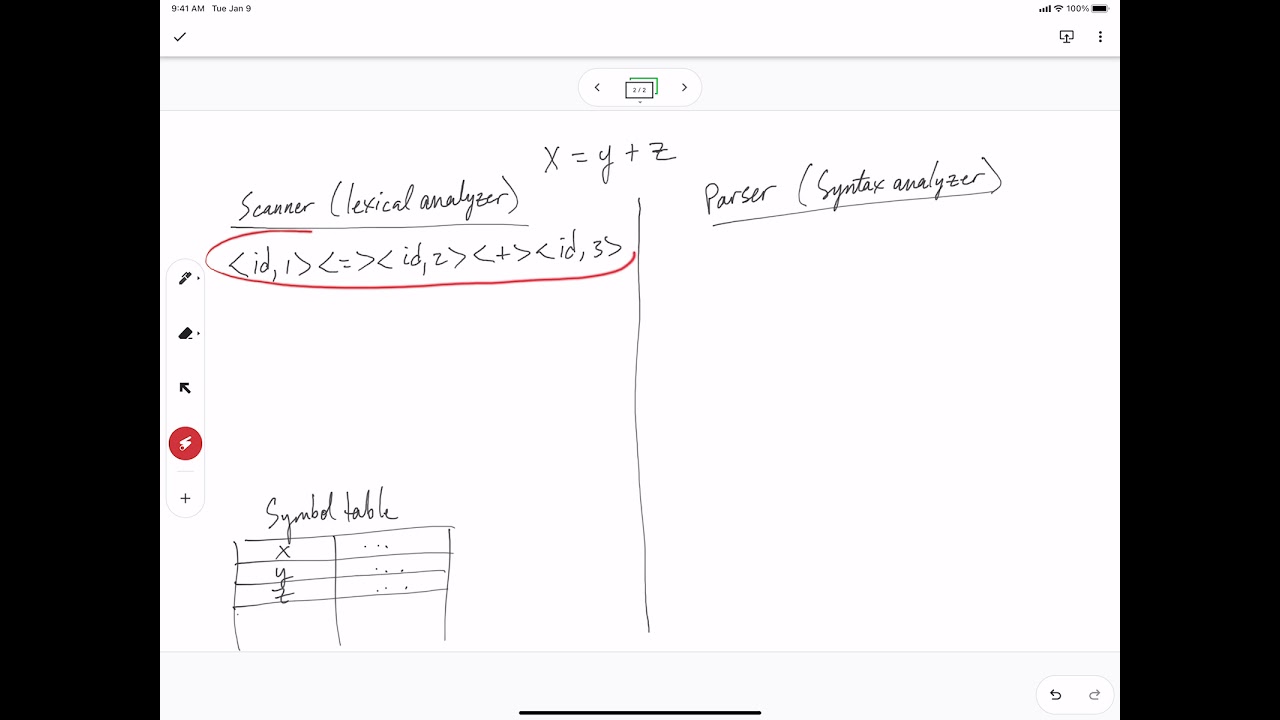 9:41 AM Tue Jan 9
100%
2 / 2
X = y + z
Scanner (lexical analyzer)
<id, 1> <=> <id, 2> <+> <id, 3>
Parser (Syntax analyzer)
Symbol table
x ...
y ...
z ...